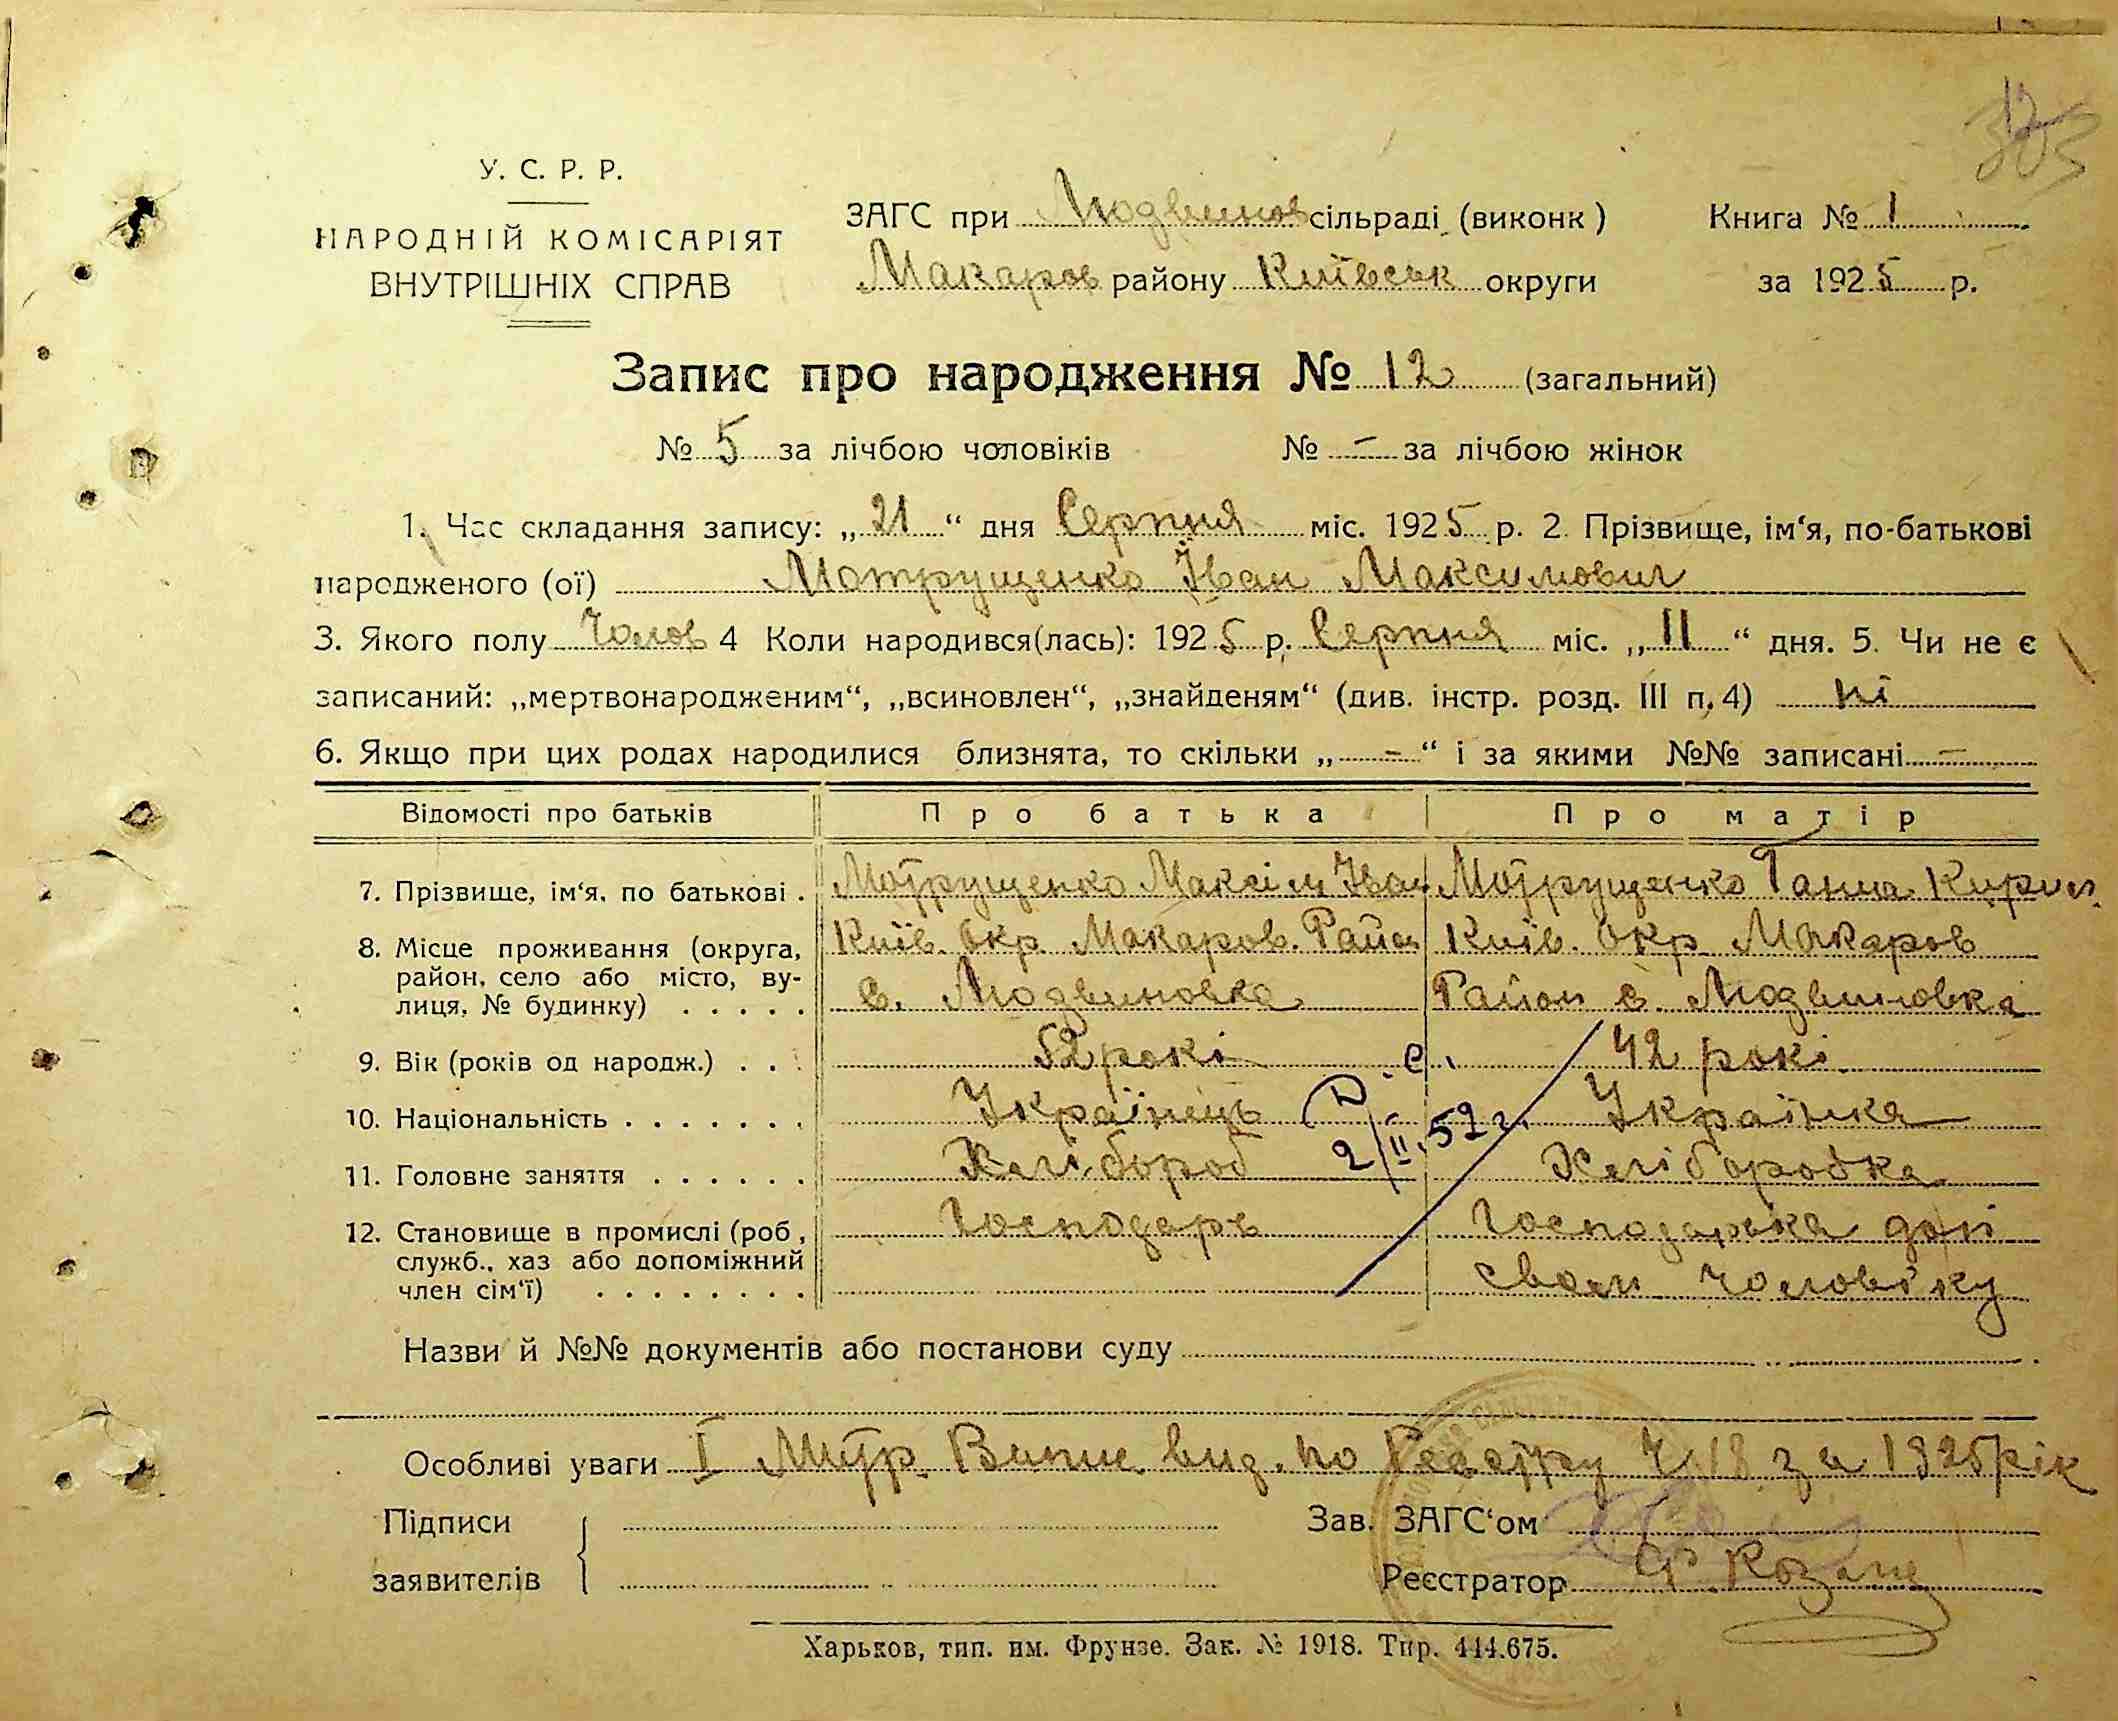 У. С. Р. Р.
НАРОДНІЙ КОМІСАРІЯТ
ВНУТРІШНІХ СПРАВ
ЗАГС при Людвинов сільраді (виконк)
Макаров району Київськ округи
Книга № 1
за 1925 р.
Запис про народження № 12 (загальний)
№ 5 за лічбою чоловіків № - за лічбою жінок
1. Час складання запису: „21“ дня Серпня міс. 1925 р. 2. Прізвище, ім‘я, по-батькові
народженого (ої) Мотрущенко Іван Максимович
3. Якого полу Чолов 4 Коли народився(лась): 1925 р. Серпня міс. „11“ дня. 5. Чи не є
записаний: „мертвонародженим“, „всиновлен“, „знайденям“ (див. інстр. розд. III п. 4) ні
6. Якщо при цих родах народилися близнята, то скільки „-“ і за якими №№ записані -
Відомості про батьків Про батька Про матір
7. Прізвище, ім‘я, по батькові . Мотрущенко Максім Іван Мотрущенко Ганна Кирил.
8. Місце проживання (округа, Київ. Окр. Макаров. Район Київ. Окр. Макаров
район, село або місто, ву-
лиця, № будинку) . . . . . с. Людвиновка Район с. Людвиновка
9. Вік (років од народж.) . . . 52 рокі 42 рокі
10. Національність . . . . . . . Українець Українка
2/II.52 г.
11. Головне заняття . . . . . . Хлібороб Хліборобка
12. Становище в промислі (роб, Господарь Господарька при
служб., хаз або допоміжний
член сім‘ї) . . . . . . . . своем чоловіку
Назви й №№ документів або постанови суду
Особливі уваги I Витис вид. по Реєстру Ч 18 за 1925 рік
Підписи
заявителів
Зав. ЗАГС‘ом
Реєстратор
Харьков, тип. им. Фрунзе. Зак. № 1918. Тир. 444.675.